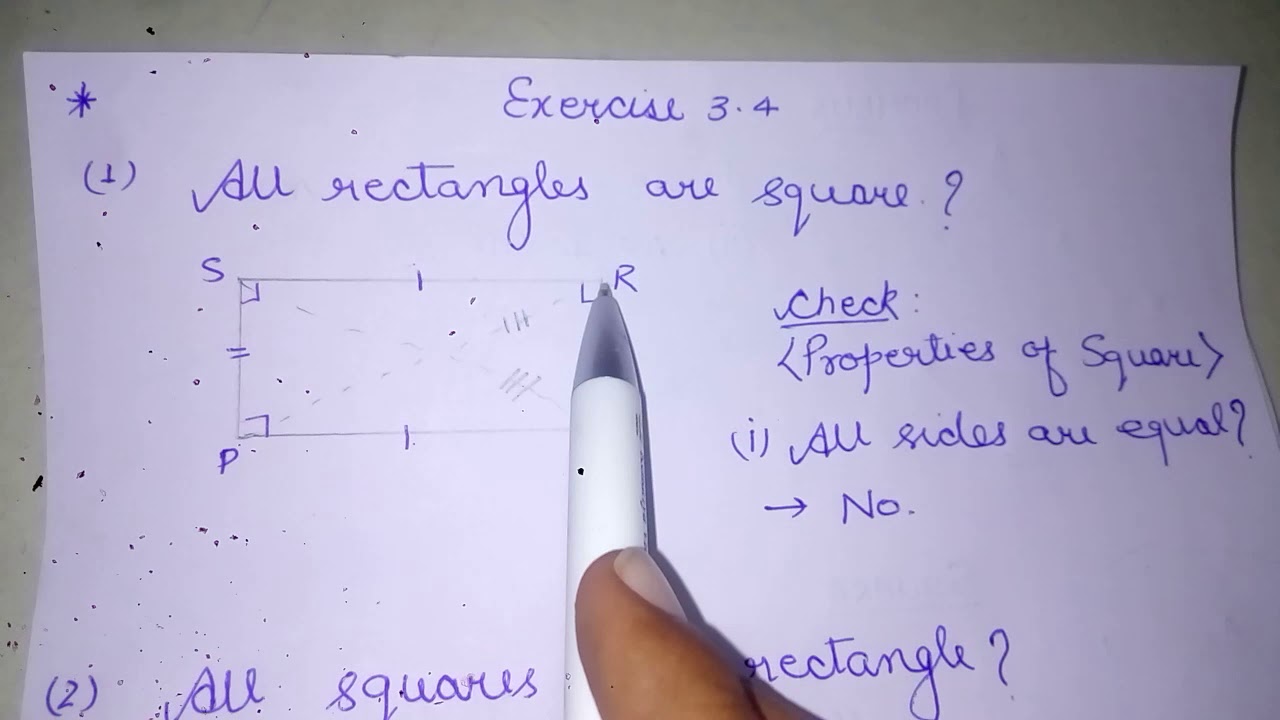 * Exercise 3.4
(1) All rectangles are square.?
S R
Check:
<Properties of Square>
(i) All sides are equal?
P
→ No.
(2) All squares rectangle?